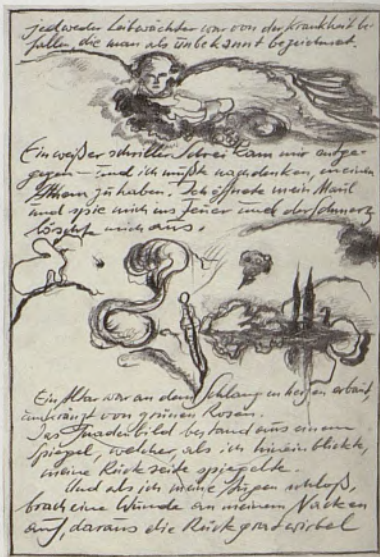 jedweder Leibwächter war von der Krankheit be-
fallen, die man als unbekannt bezeichnet.
Ein weißer schriller Schrei kam mir entge-
gegen — und ich mußte nachdenken, um einen
Athem zu haben. Ich öffnete mein Maul
und spie mich ins Feuer und der Schmerz
löschte mich aus.
Ein Altar war an dem Schlangen erbaut,
umkränzt von grünen Rosen.
Das Gnadenbild bestand aus einem
Spiegel, welcher, als ich hineinblickte,
meine Rückseite spiegelte.
Und als ich meine Augen schloß,
brach eine Wunde an meinem Nacken
auf, daraus die Rückgratwirbel